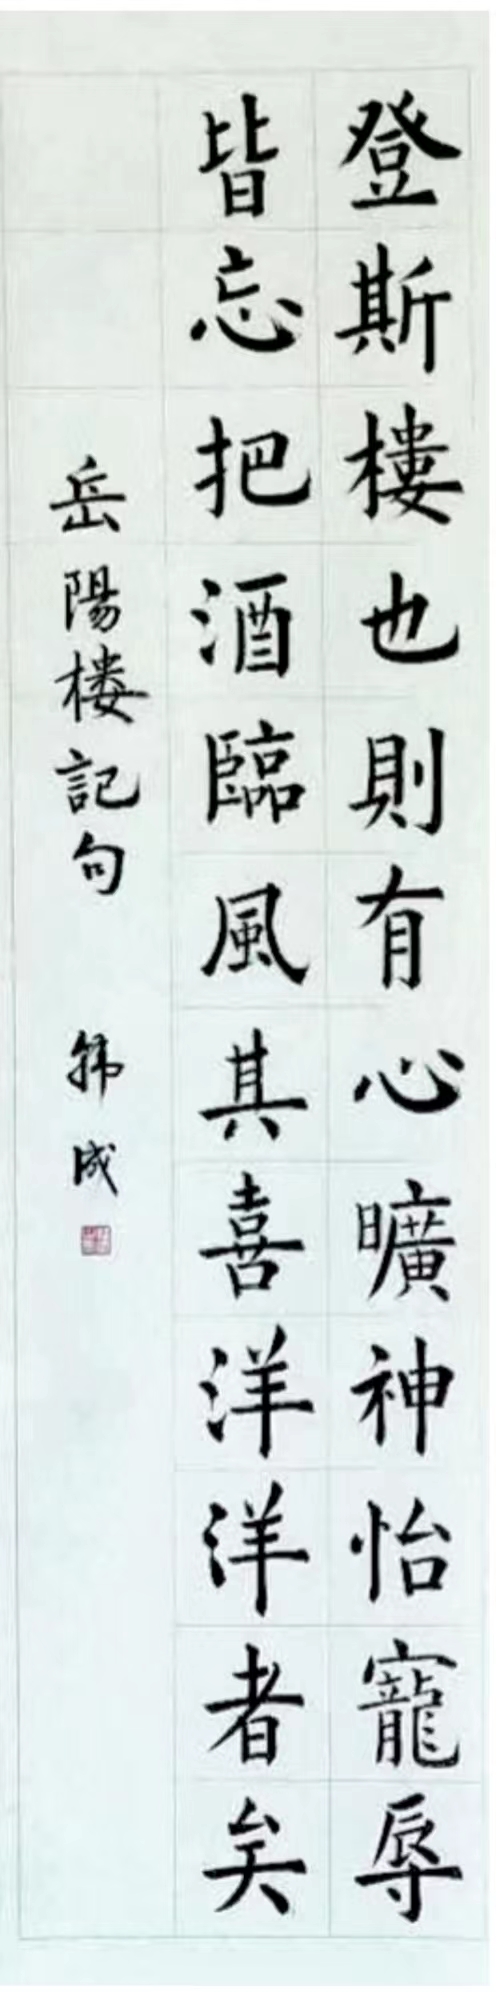 登斯樓也則有心曠神怡寵辱
皆忘把酒臨風其喜洋洋者矣
岳陽楼記句
韩成